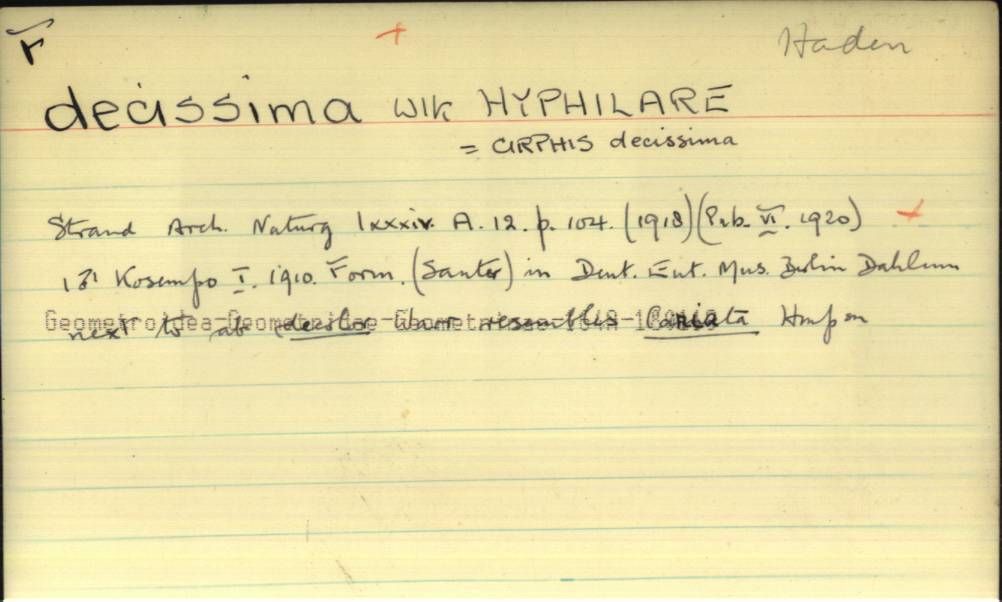 Haden
decissima wlk HYPHILARE
= CIRPHIS decissima
Strand Arch. Naturg lxxxiv. A. 12. p. 104. (1918) (Pub. VI. 1920)
1♂ Kosempo I. 1910. Form. (Sauter) in Deut. Ent. Mus. Berlin Dahlem
Geometroidea-Geometridae-Geometrinae
next to ab resembles Hmpsn